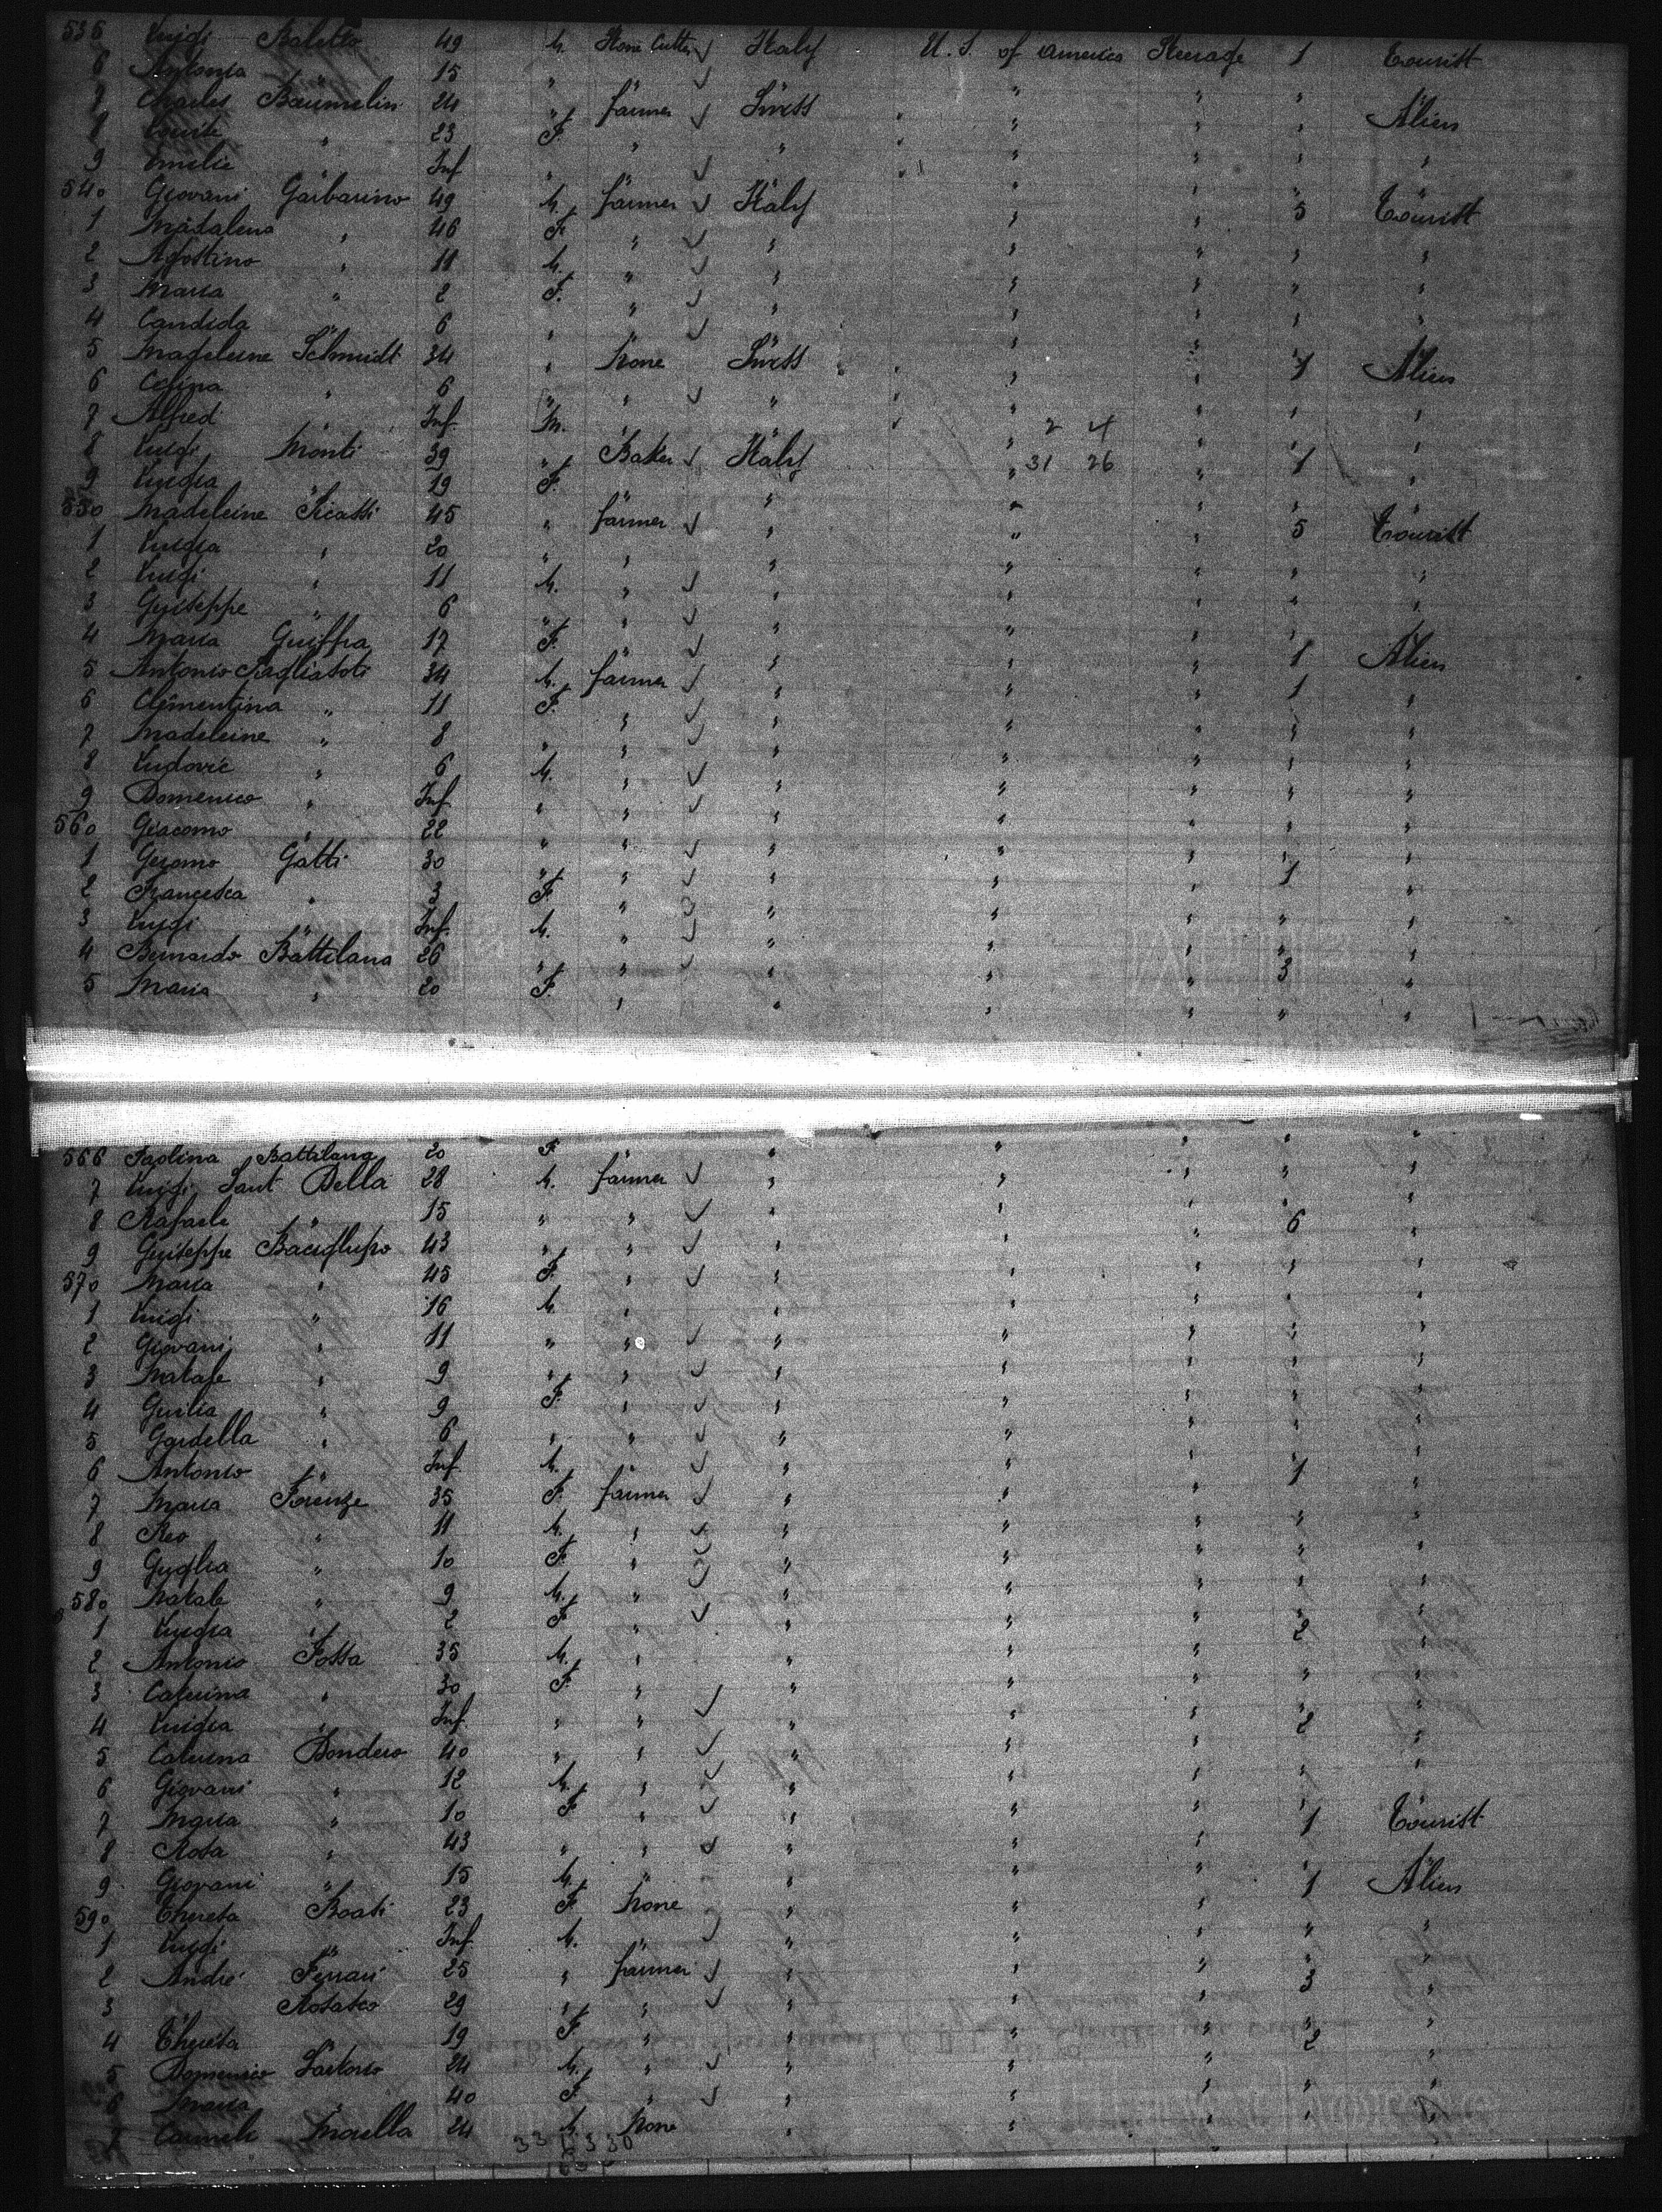 535 Luigi Baletto 49 M. Stone Cutter Italy U. S. of America Steerage 1 Tourist
6 Antonia " 15 " " " " "
7 Charles Baumelin 24 " farmer Swiss " " " Alien
8 Louise " 23 F. " " " " " "
9 Emelie " Inf " " " " " " "
540 Giovani Garbarino 49 M. farmer Italy " " 5 Tourist
1 Madalena " 46 F. " " " " " "
2 Agostino " 11 M. " " " " " "
3 Maria " 2 F. " " " " " "
4 Candida " 6 " " " " " " "
5 Madeleine Schmidt 34 " None Swiss " " 1 Alien
6 Celina " 6 " " " " " " "
7 Alfred " Inf M. " " " 2 4 " " "
8 Luigi Monti 39 " Baker Italy " 31 26 " 1 "
9 Luigia " 19 F. " " " " " "
550 Madeleine Picassi 45 " farmer " " " 5 Tourist
1 Luigia " 20 " " " " " " "
2 Luigi " 11 M. " " " " " "
3 Guiseppe " 6 " " " " " " "
4 Maria Guiffra 17 F. " " " 1 Alien
5 Antonio 34 M. farmer " " " 1 "
6 Clementina " 11 F. " " " " " "
7 Madeleine " 8 " " " " " " "
8 Ludovic " 6 M. " " " " " "
9 Domenico " Inf " " " " " " "
560 Giacomo " 22 " " " " " " "
1 Geromo Gatti 30 " " " " " 1 "
2 Francesca " 3 F. " " " " " "
3 Luigi " Inf. M. " " " " " "
4 Bernardo Battilana 26 " " " " " 3 "
5 Maria " 20 F. " " " " " "
566 Paolina Battilana 20 F " " " " "
7 Luigi Sant Bella 28 M. farmer " " " " "
8 Rafaele " 15 " " " " " 6 "
9 Guiseppe Bacciglupo 43 " " " " " " "
570 Maria " 45 F. " " " " " "
1 Luigi " 16 M. " " " " " "
2 Giovani " 11 " " " " " " "
3 Natale " 9 " " " " " " "
4 Guilia " 9 F. " " " " " "
5 Gardella " 6 " " " " " " "
6 Antonio " Inf. M. " " " " 1 "
7 Maria 35 F. farmer " " " " "
8 " 11 M. " " " " " "
9 " 10 F. " " " " " "
580 Natale " 9 M. " " " " " "
1 Luigia " 2 F. " " " " 2 "
2 Antonio Fossa 35 M. " " " " " "
3 Caterina " 30 F. " " " " " "
4 Luigia " Inf. " " " " " 2 "
5 Caterina Dondero 40 " " " " " " "
6 Giovani " 12 M. " " " " " "
7 Maria " 10 F. " " " " 1 Tourist
8 Rosa " 43 " " " " " " "
9 Giovani " 15 M. " " " " 1 Alien
590 Theresa Boati 23 F. None " " " " "
1 Luigi " Inf M. " " " " " "
2 André Ferrari 25 " farmer " " " 3 "
3 29 " " " " " " "
4 Theresa " 19 F. " " " " 2 "
5 Domenico Sartorio 24 M. " " " " " "
6 Maria " 40 F. " " " " " "
7 Morella 24 M. None " " " " "